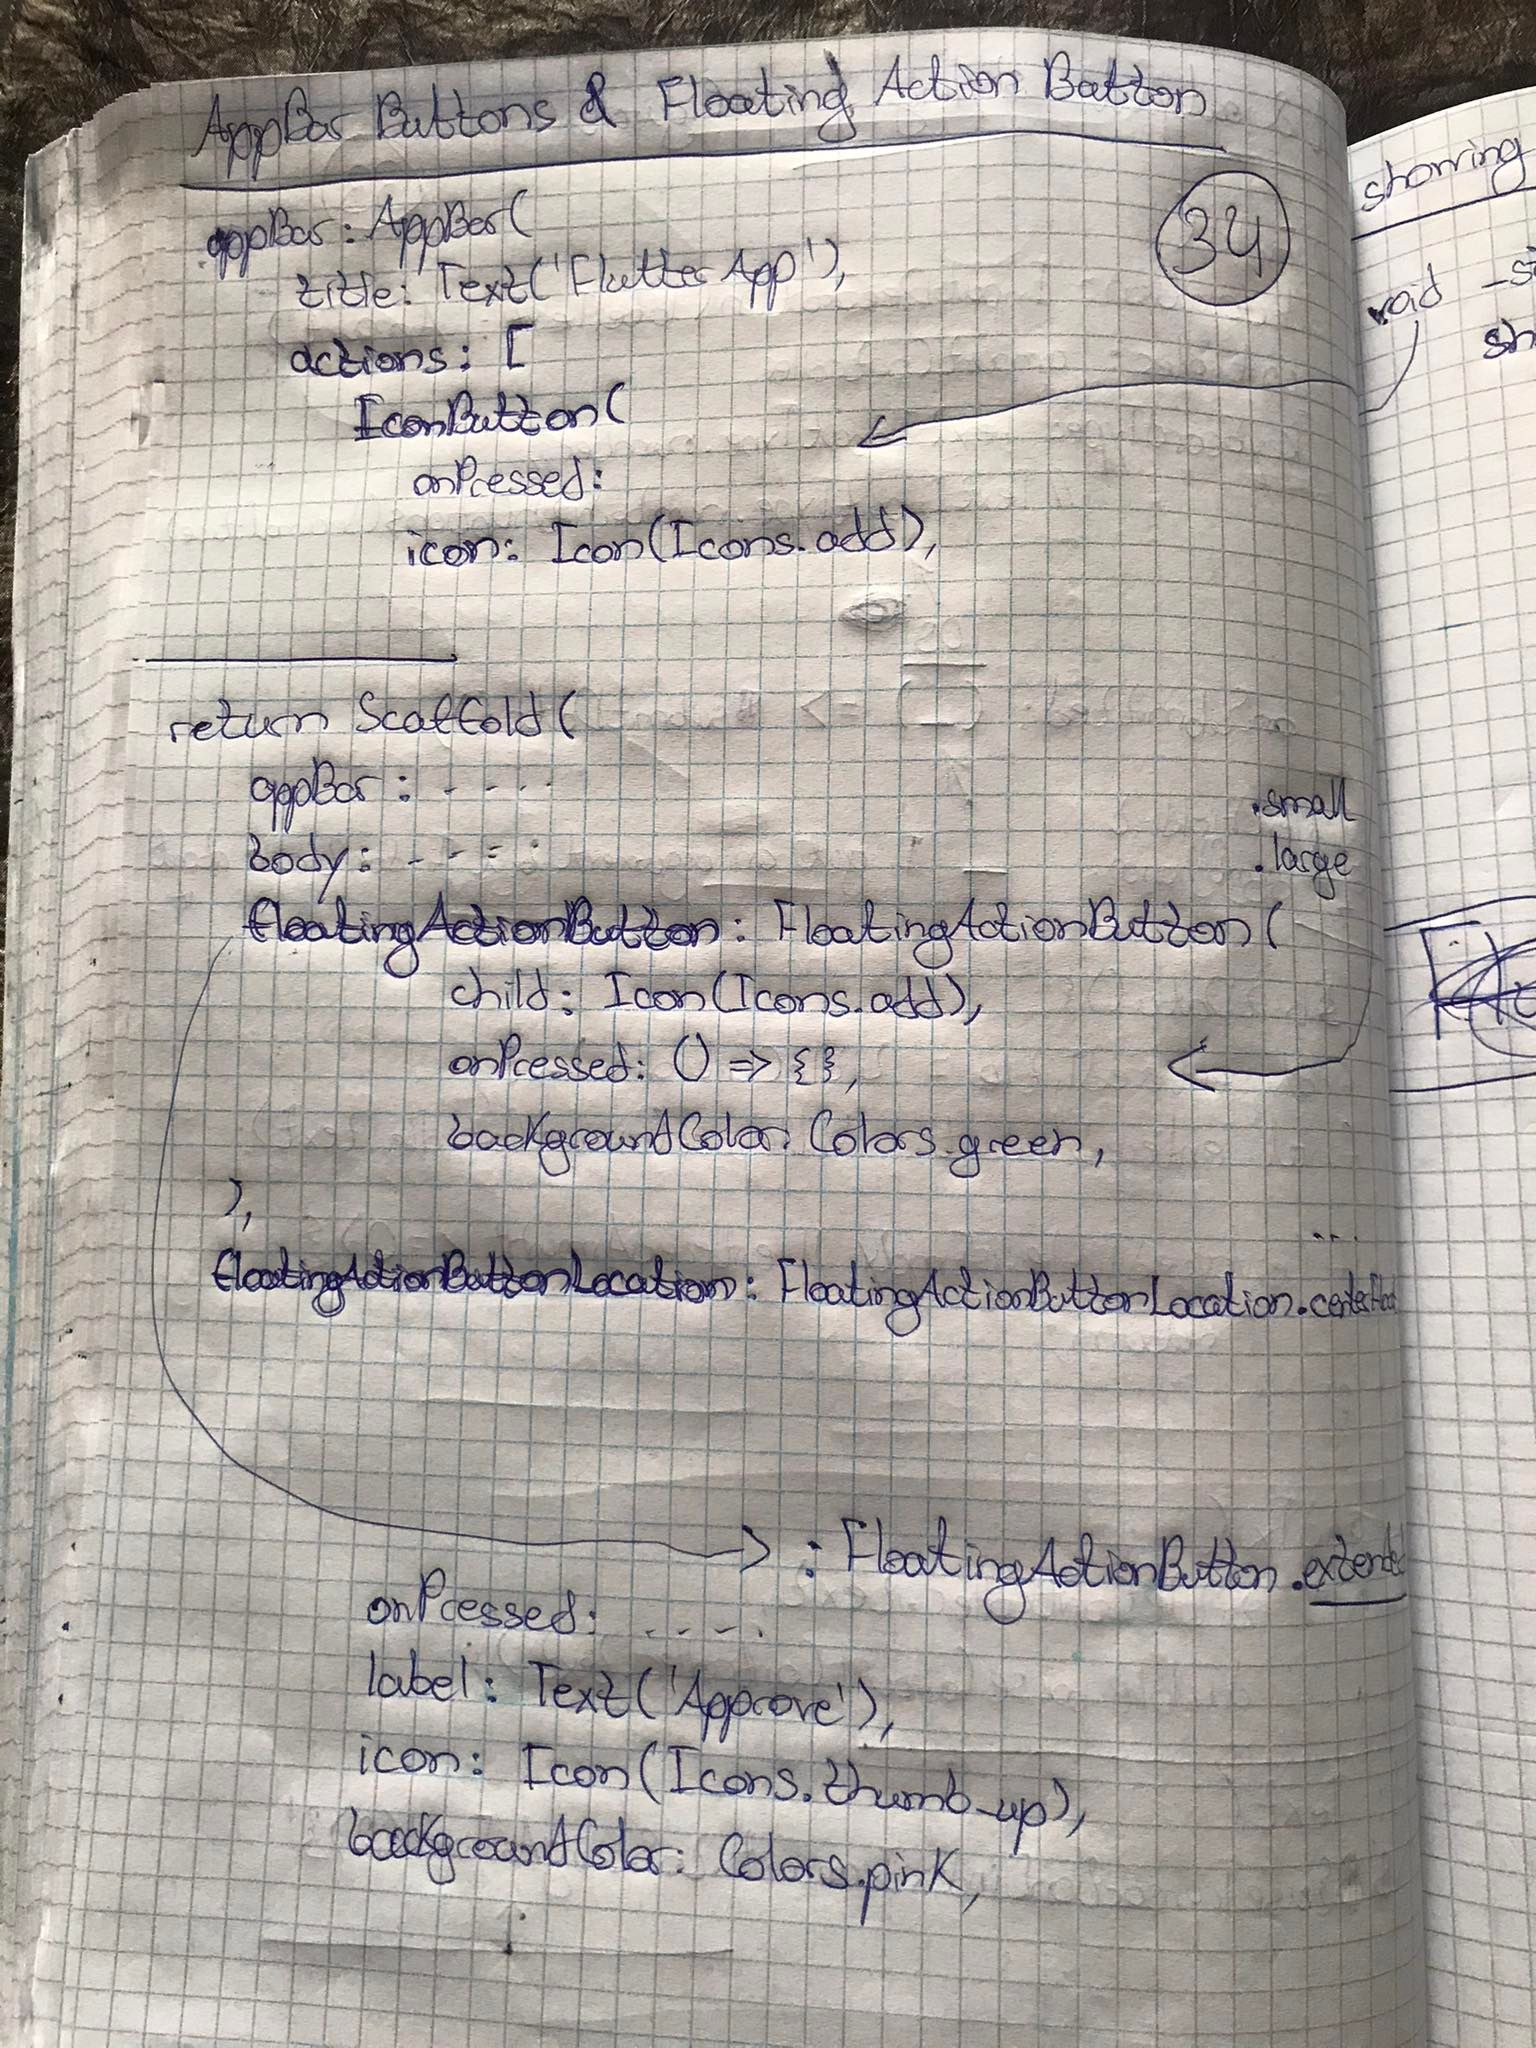 AppBar Buttons & Floating Action Button
34
appBar: AppBar(
title: Text('Flutter App'),
actions: [
IconButton(
onPressed:
icon: Icon(Icons.add),
return Scaffold(
appBar : - - - -
body: - - - -
.small
.large
floatingActionButton: FloatingActionButton(
child: Icon(Icons.add),
onPressed: () => {},
backgroundColor: Colors.green,
),
...
floatingActionButtonLocation: FloatingActionButtonLocation.centerFloat
: FloatingActionButton.extended
onPressed: - - - -
label: Text('Approve'),
icon: Icon(Icons.thumb_up),
backgroundColor: Colors.pink,
showing
void
sh